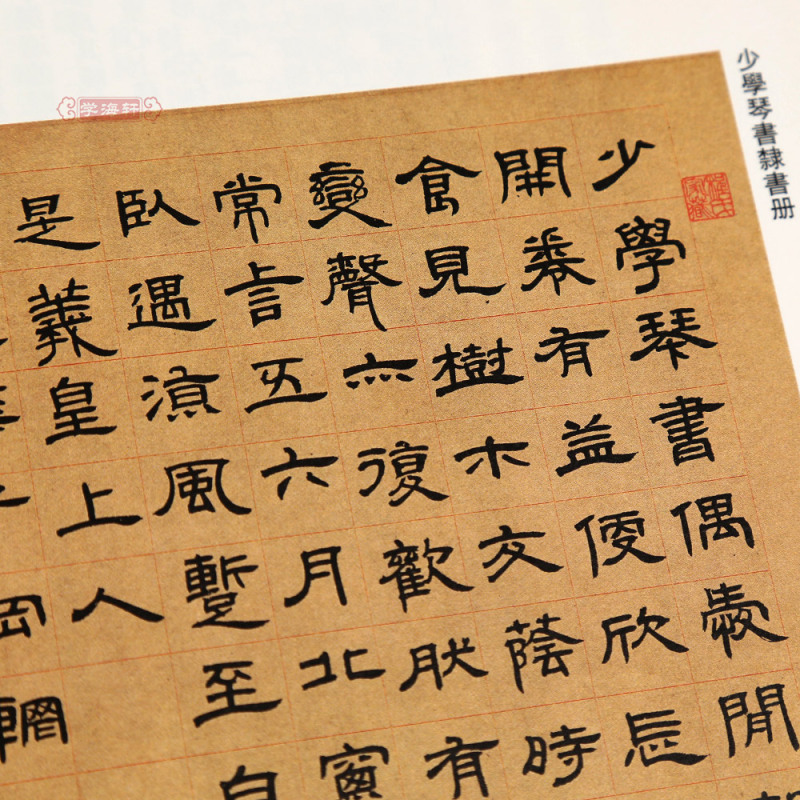 少學琴書隸書册
少學琴書偶愛閒
開卷有益便欣忘
食見樹木交蔭時
變聲亦復歡然有
常言五六月北窗
臥遇涼風暫至自
是羲皇上人
学海轩